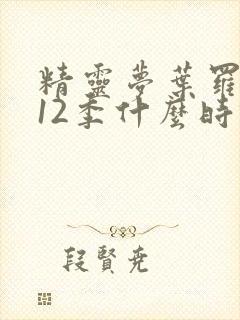 精靈夢葉羅
12季什麼時
段賢堯